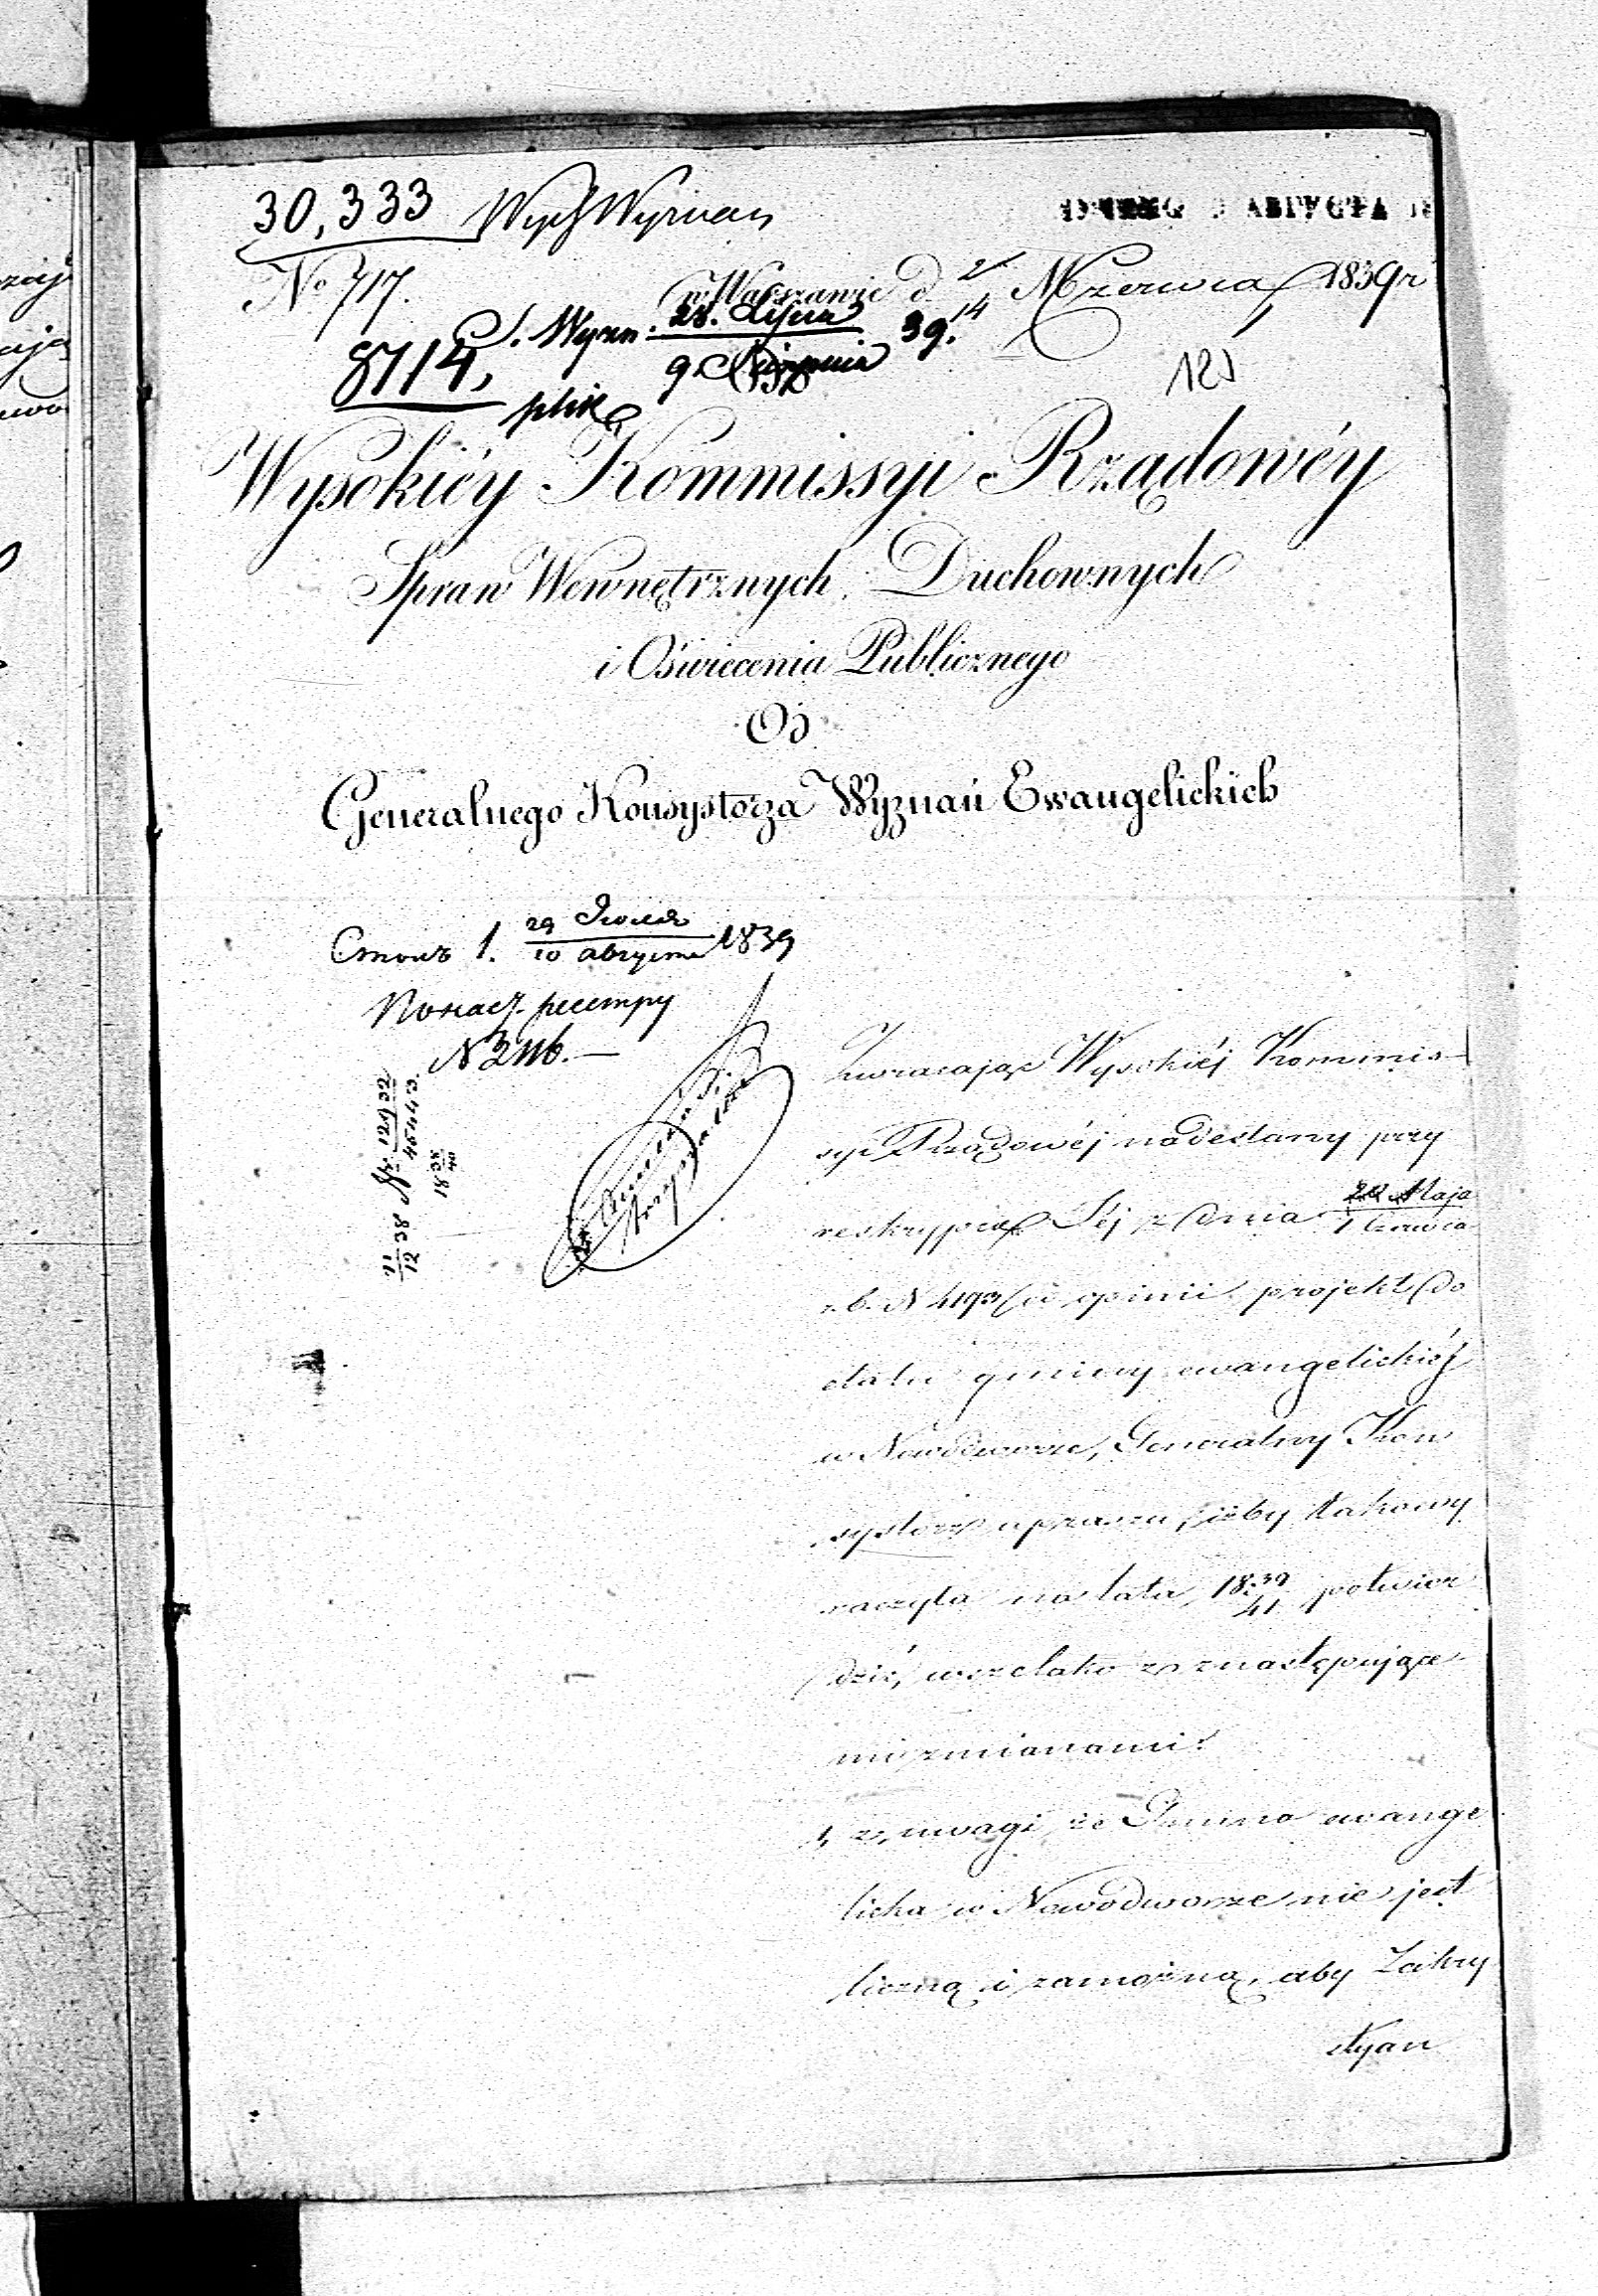 30,333 Wych Wyznań
АВГУСТА
No 717. w Warszawie d. 2/14 Czerwca 1839 r
S. Wyzn. 28. Lipca / 9 Sierpnia 39.
8714, plik
125
Wysokiéy Kommissyi Rządowéy
Spraw Wewnętrznych, Duchownych
i Oświecenia Publicznego
Od
Generalnego Konsystorza Wyznań Ewangelickich
Столъ 1. 29 Июля / 10 августа 1839
N 3116.—
Nr 12932 / 45443
18 38/40
11/12 38
Zwracając Wysokiéj Kommis-
syi Rządowéj nadesłany przy
reskrypcie Jéj z dnia 20 Maja / 1 Czerwca
r. b. N 4193 do opinii projekt do
etatu gminy ewangelickiéj
w Nowodworze, Generalny Kon
systorz uprasza, iżby takowy
raczyła na lata 18 39/41 potwier
dzić, wszelako z następujące
mi zmianami:
1, z uwagi, że Gmina ewange
licka w Nowodworze nie jest
liczną i zamożną, aby Zakry
styan